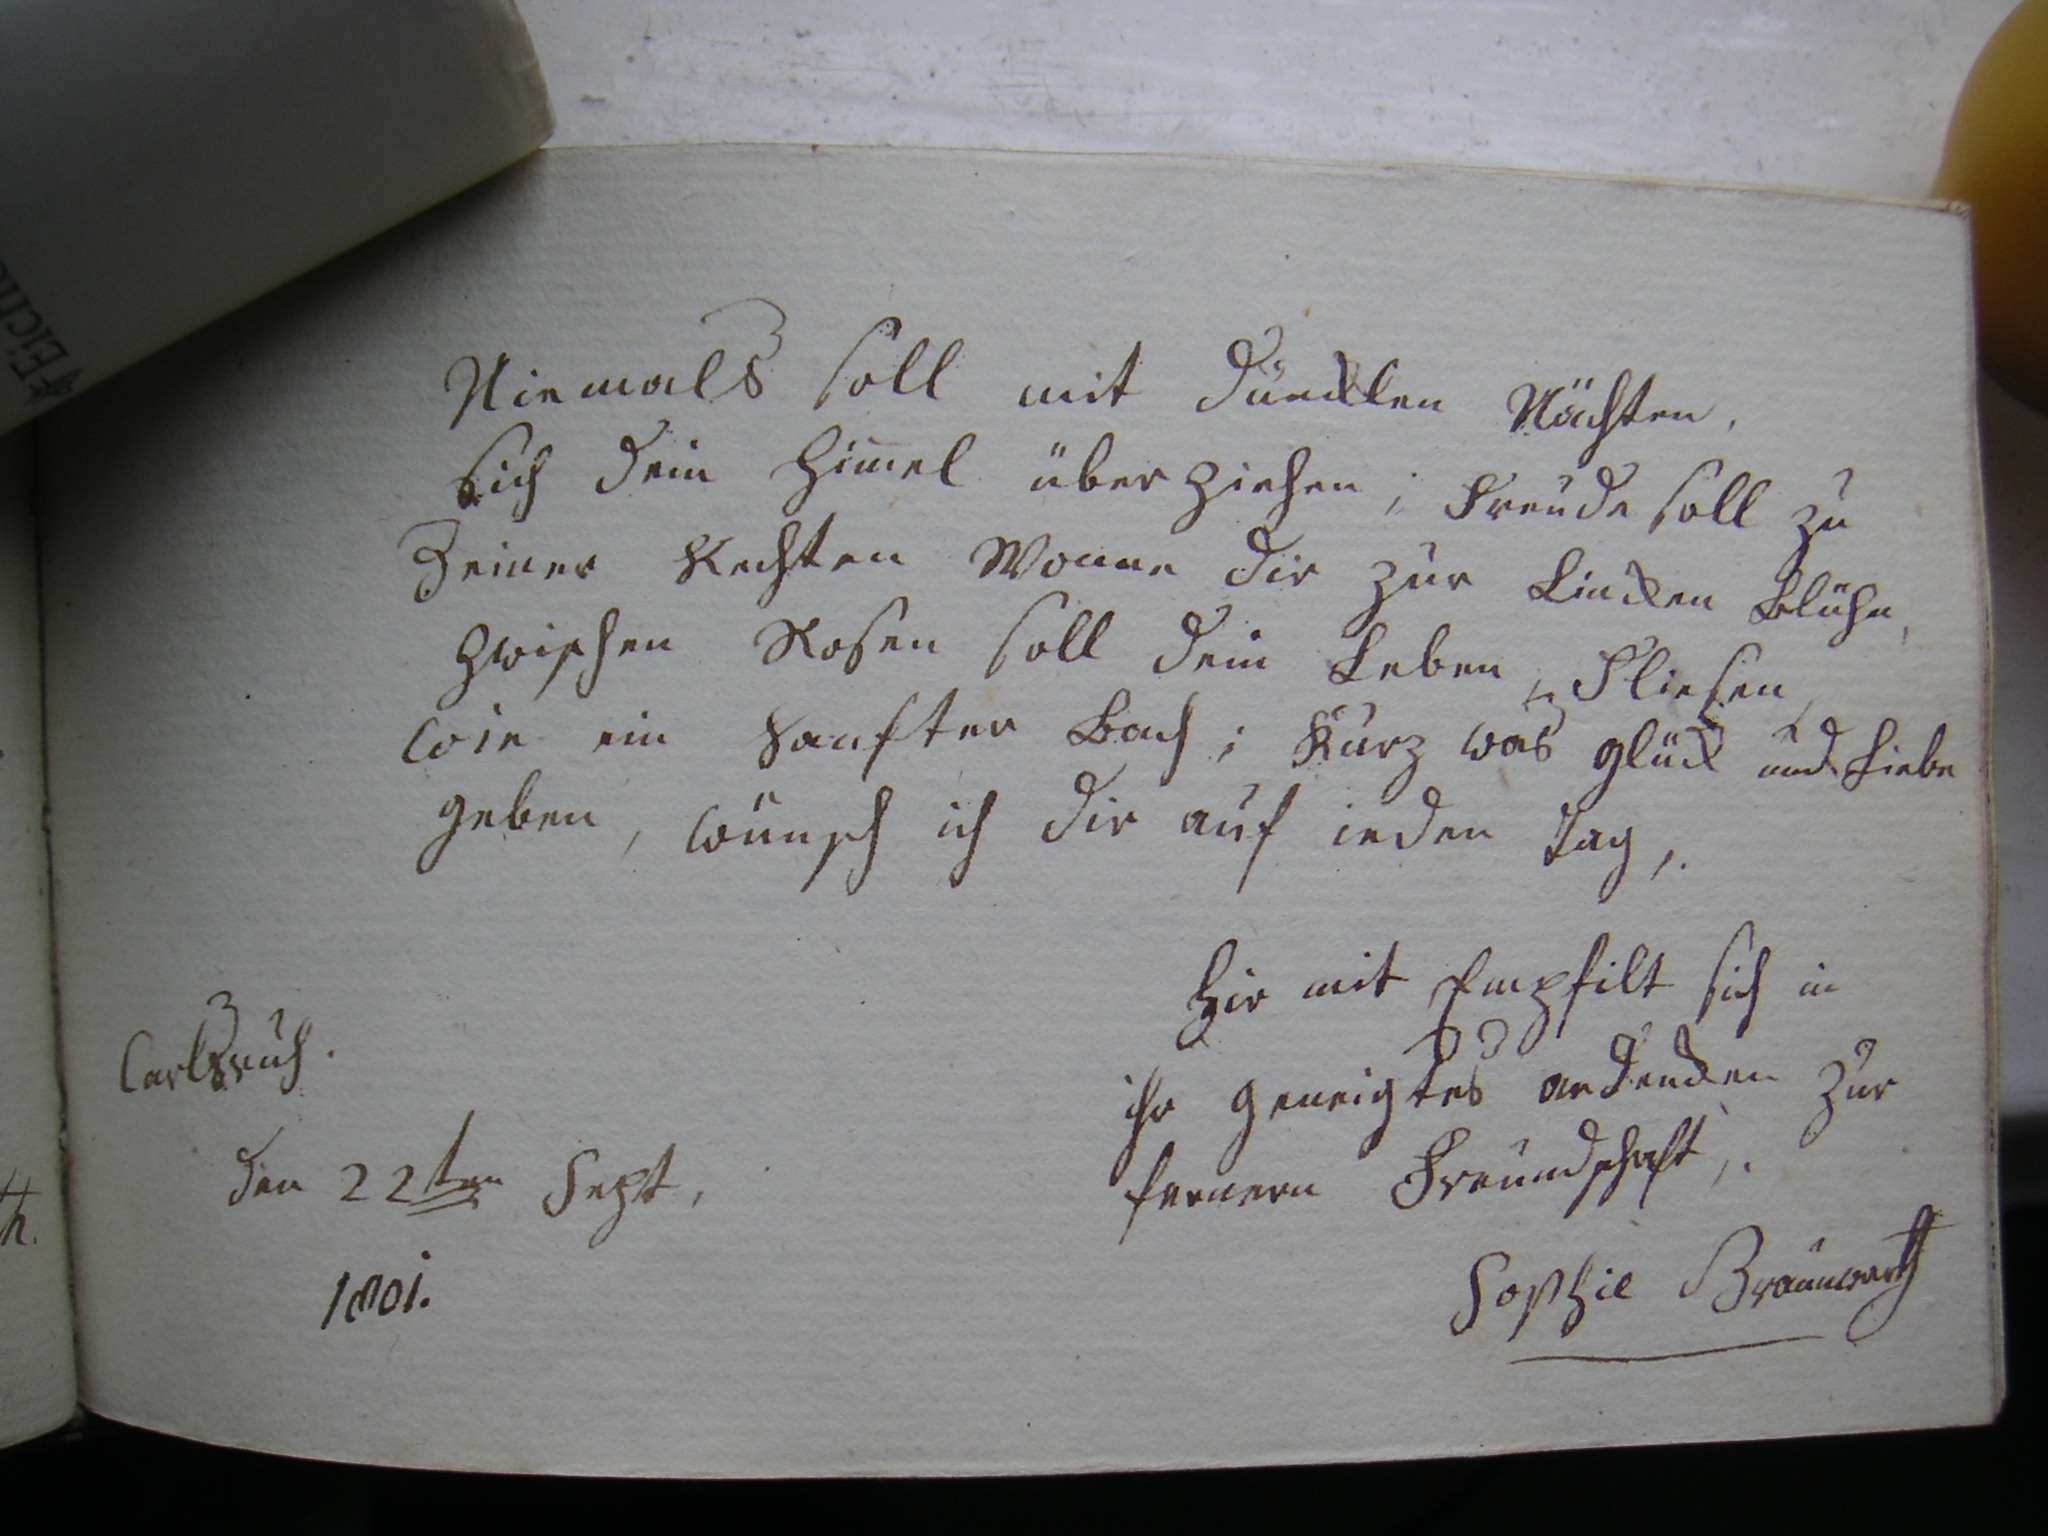 Eich
Niemals soll mit duncklen Nächten,
sich dein Him̄el über ziehen; Freude soll zu
Deiner Rechten Wonne dir zur Lincken Blühn,
Zwischen Rosen soll dein Leben, Fliesen,
wie ein Sanfter Bach; Kurz was glück und Liebe
geben, wünsch ich dir auf ieden Tag,.
Hir mit Empfilt sich in
ihr geneigtes andencken zur
fernern Freundschaft,.
Sophie Braunwarth
Carlsruh.
den 22ten Sept,
1801.